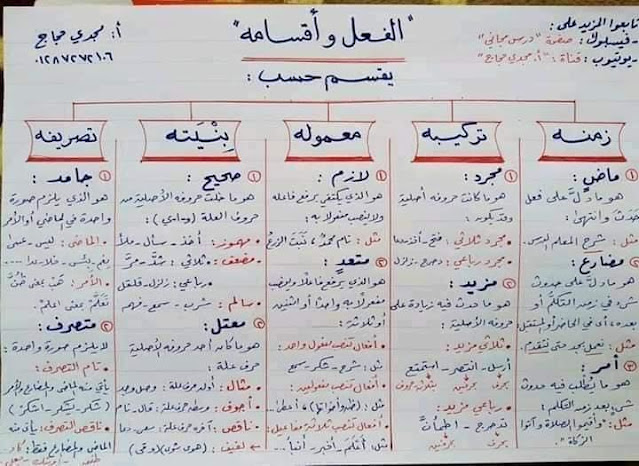 تابعوا المزيد على:
-فيسبوك: صفحة "درس مجاني"
-يوتيوب: قناة: "أ. مجدي حجاج"
"الفعل وأقسامه"
أ: مجدي حجاج
يقسم حسب:
زمنه
١ ماضٍ:
هو ما دلَّ على فعل
حَدَث وانتهى:
مثل: شرح المعلم الدرس.
مضارع:
هو ما دل على حدوث
شيء في زمن التكلم أو
بعده، أي في الحاضر أو المستقبل
مثل: نعمل بجد حتى نتقدم.
٣ أمر:
هو ما يُطلب به حدوث
شيء بعد زمن التكلم:
مثل: "وأقيموا الصلاة وآتوا
الزكاة".
تركيبه
١ مجرد:
هو ما كانت حروفه أصلية
وقد يكون:
• مجرد ثلاثي: فتح - أخذ
• مجرد رباعي: دحرج - زلزل
٢ مزيد:
هو ما حدث فيه زيادة على
حروفه الأصلية:
• ثلاثي مزيد:
أرسل - انتصر - استمتع
بحرف بحرفين بثلاثة حروف
• رباعي مزيد:
تدحرج - اطمأنَّ
بحرف بحرفين
معموله
١ لازم:
هو الذي يكتفي برفع فاعله
ولا ينصب مفعولا به:
مثل: نام محمدٌ، نَبَتَ الزرعُ
٢ متعدٍ:
هو الذي يرفع فاعلا وينصب
مفعولا به واحدًا أو اثنين
أو ثلاثة:
• أفعال تنصب مفعول واحد:
مثل: شرح - شكر - سمع
• أفعال تنصب مفعولين:
مثل: (ظن وأخواتها)، أعطى
• أفعال تنصب ثلاثة مفاعيل:
مثل: أعْلَمَ - أخبر - أنبأ...
بِنْيَته
١ صحيح:
هو ما خلت حروفه الأصلية من
حروف العلة (وـاـي):
• مهموز: أخذ - سأل - ملأ
• مضعف: • ثلاثي: شدَّ - مَرَّ
• رباعي: زلزل - قلقل
• سالم: شرب - سمع - فهم
٢ معتل:
هو ما كان أحد حروفه الأصلية
حرف علة:
• مثال: أوله حرف علة: وصل وجد
• أجوف: وسطه حرف علة: قال - نام
• ناقص: آخره حرف علة: سعى - دعا
تصريفه
١ جامد:
هو الذي يلزم صورة
واحدة في الماضي أو الأمر
• الماضي: ليس - عسى
نِعْمَ - بِئْسَ
• الأمر: هَبْ بمعنى ظُنَّ
تَعَلَّمْ بمعنى اعلم.
٢ متصرف:
لا يلزم صورة واحدة:
• تام التصرف:
يأتي منه الماضي والمضارع والأمر
(شكر - يشكر - اشكر)
• ناقص التصرف: يأتي منه
الماضي والمضارع فقط: كاد